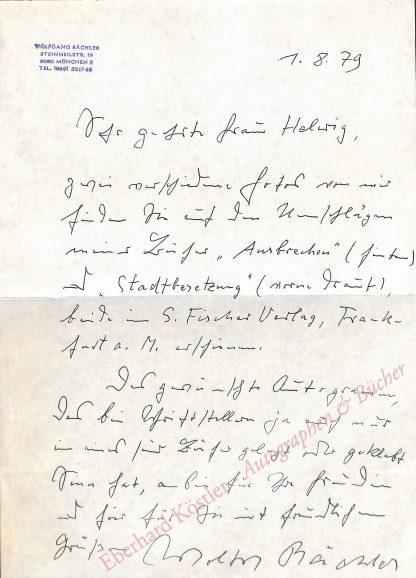 WOLFGANG BÄCHLER
STEINHEILSTR. 19
8000 MÜNCHEN 2
TEL. (089) 521745
1. 8. 79
Sehr geehrte Frau Helwig,
zwei verschiedene Fotos von mir
finden Sie auf den Umschlägen
meiner Bücher „Ausbrechen" (hinten)
und „Stadtbesetzung" (vorne drauf),
beide im S. Fischer Verlag, Frank-
furt a. M. erschienen.
Das gewünschte Autogramm,
das bei Schriftstellern ja nur
in eines ihrer Bücher gelegt oder geklebt
Sinn hat, anbei für Ihre Freundin
und für Sie mit freundlichen
Grüßen Wolfgang Bächler
Eberhard Köstler Autographen & Bücher